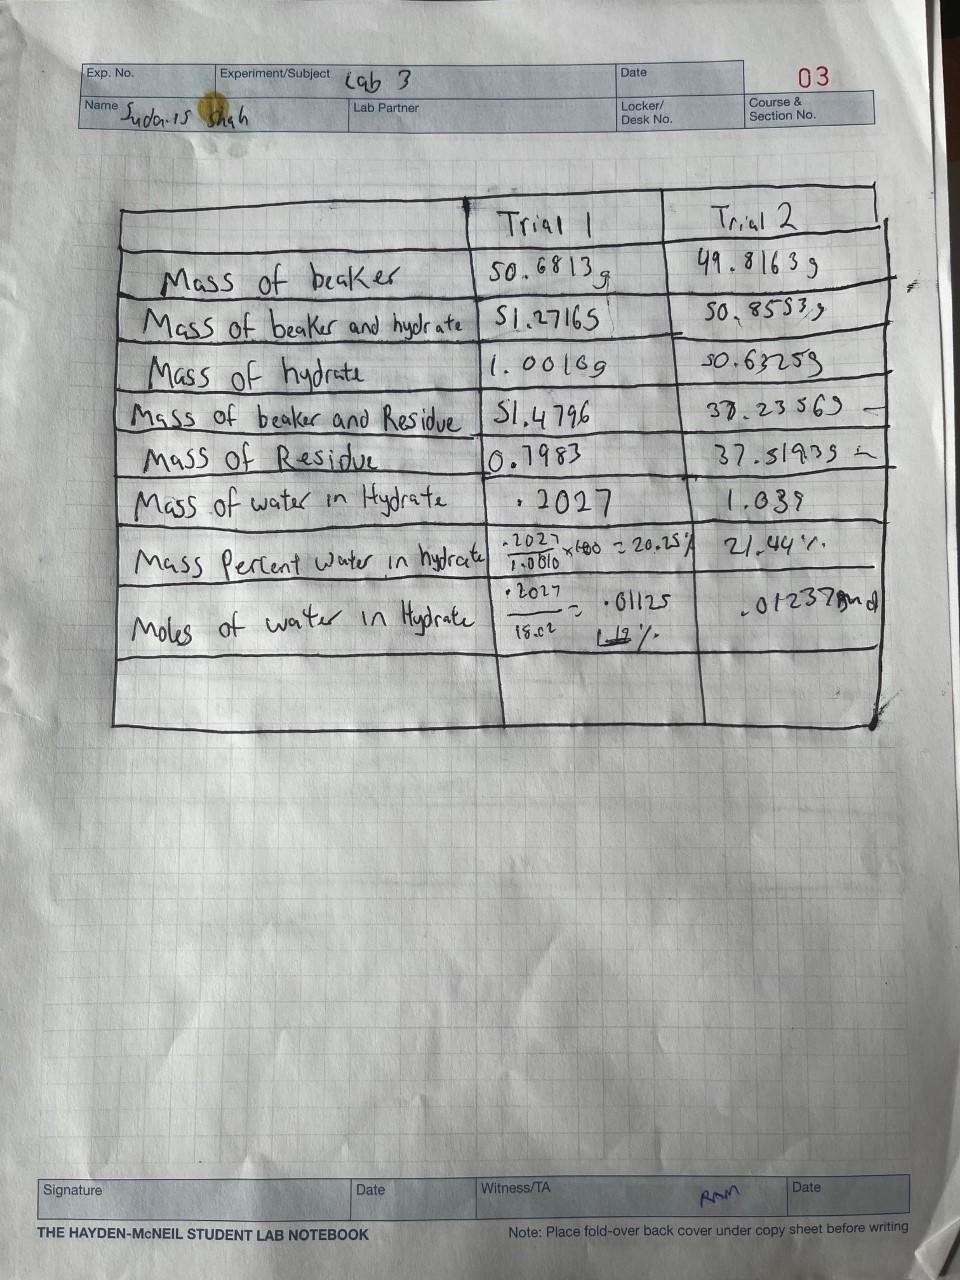 Exp. No. Experiment/Subject Lab 3 Date 03
Name Shah Lab Partner Locker/ Desk No. Course & Section No.
Trial 1 Trial 2
Mass of beaker 50.6813g 49.8163g
Mass of beaker and hydrate 51.27165 50.8553g
Mass of hydrate 1.0010g 50.6325g
Mass of beaker and Residue 51.4796 38.2356g
Mass of Residue 0.7983 37.5193g
Mass of water in Hydrate .2027 1.039
Mass Percent water in hydrate .2027/1.0010 ×100 = 20.25% 21.44%
Moles of water in Hydrate .2027/18.02 = .01125 .01237
Signature Date Witness/TA RAM Date
THE HAYDEN-McNEIL STUDENT LAB NOTEBOOK Note: Place fold-over back cover under copy sheet before writing